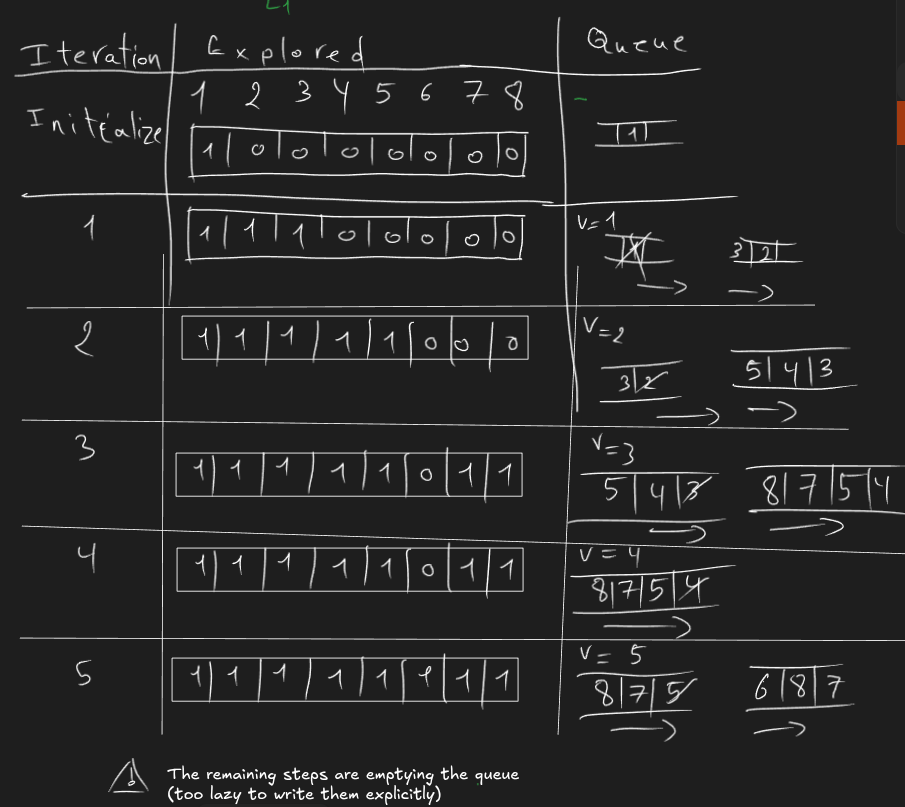 L1
Iteration Explored Queue
1 2 3 4 5 6 7 8
Initialize 1 0 0 0 0 0 0 0 1
1 1 1 1 0 0 0 0 0 v=1 1 3 2
2 1 1 1 1 1 0 0 0 v=2 3 2 5 4 3
3 1 1 1 1 1 0 1 1 v=3 5 4 3 8 7 5 4
4 1 1 1 1 1 0 1 1 v=4 8 7 5 4
5 1 1 1 1 1 1 1 1 v=5 8 7 5 6 8 7
! The remaining steps are emptying the queue
(too lazy to write them explicitly)